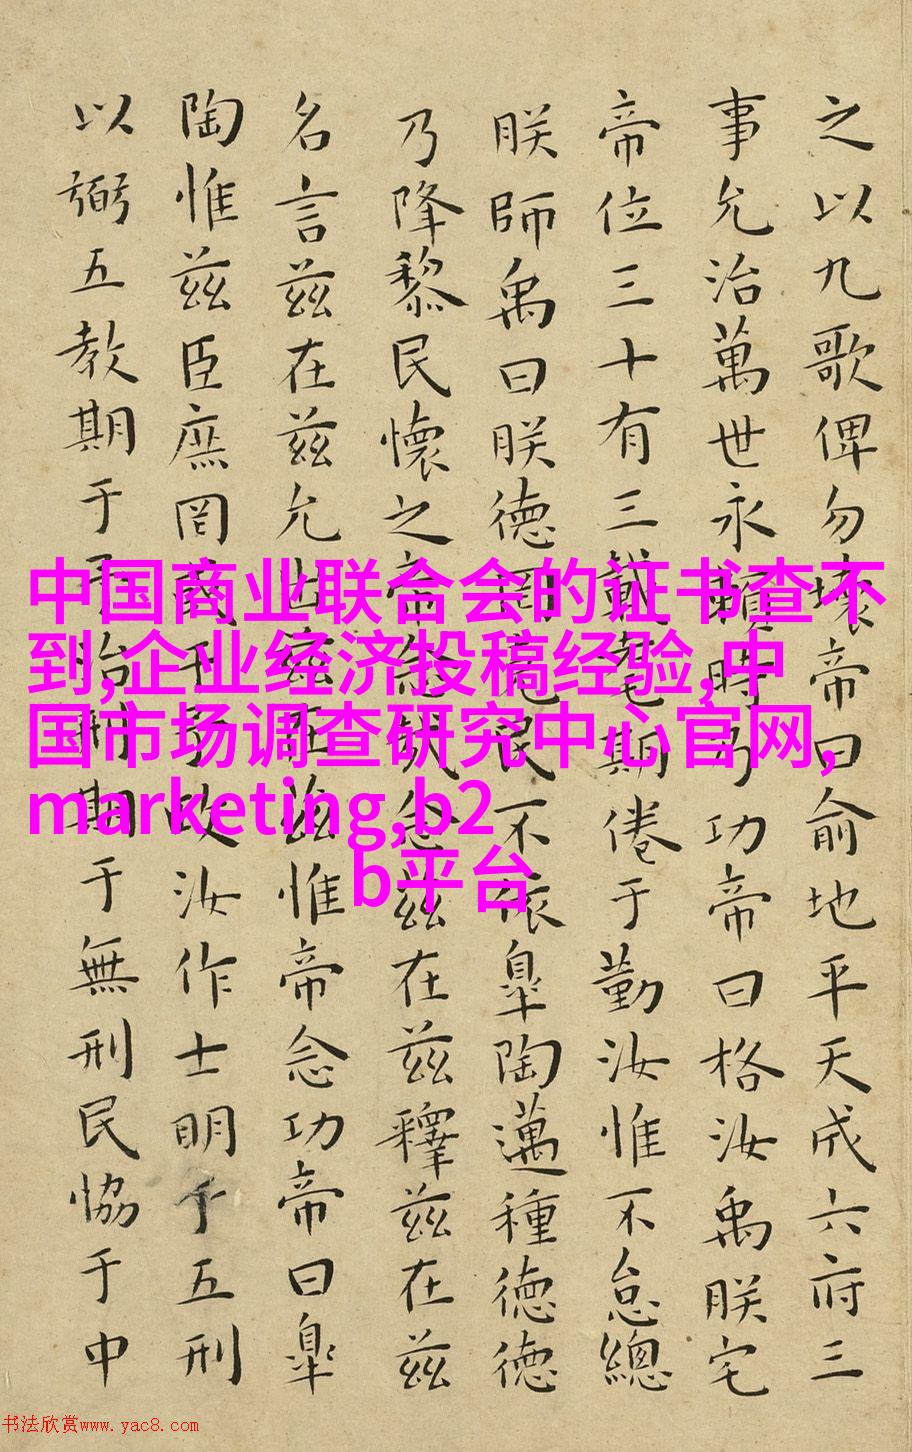 之以九歌俾勿壞帝曰俞地平天成六府三
事允治萬世永賴時乃功帝曰格汝禹朕宅
帝位三十有三載耄期倦于勤汝惟不怠總
朕師禹曰朕德罔克民不依皐陶邁種德德
乃降黎民懷之帝念哉念茲在茲釋茲在茲
名言茲在茲允出茲在茲惟帝念功帝曰皐
陶惟茲臣庶罔或干予政汝作士明于五刑
以弼五教期于予治刑期于無刑民恊于中
中国商业联合会的证书查不
到,企业经济投稿经验,中
国市场调查研究中心官网,
marketing,b2
b平台
书法欣赏www.yac8.com